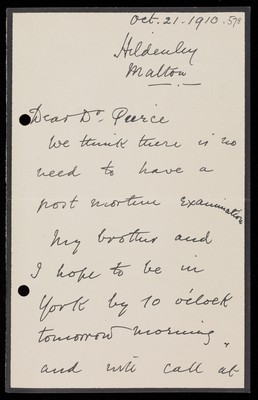 Oct. 21. 1910. 578
Hildenley
Malton
Dear Dr. Pierce
We think there is no
need to have a
post mortem examination
My brother and
I hope to be in
York by 10 o'clock
tomorrow morning,
and will call at